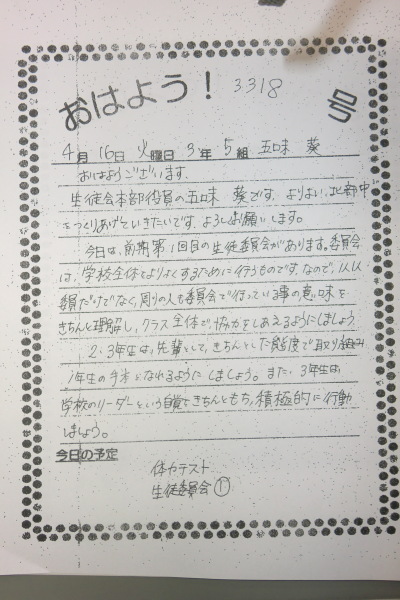 おはよう！ 3318 号
4月16日 火曜日 3年 5組 五味 葵
おはようございます。
生徒会本部役員の五味 葵です。よりよい、北部中
をつくりあげていきたいです。よろしくお願いします。
今日は、前期第1回目の生徒委員会があります。委員会
は、学校全体をよりよくするために行うものです。なので、
委員だけでなく、周りの人も委員会で行っている事の意味を
きちんと理解し、クラス全体で、協力をしあえるようにしましょう
2、3年生は、先輩として、きちんとした態度で取り組み
1年生の手本となれるようにしましょう。また、3年生は、
学校のリーダーという自覚をきちんともち、積極的に行動
しましょう。
今日の予定
体力テスト
生徒委員会①